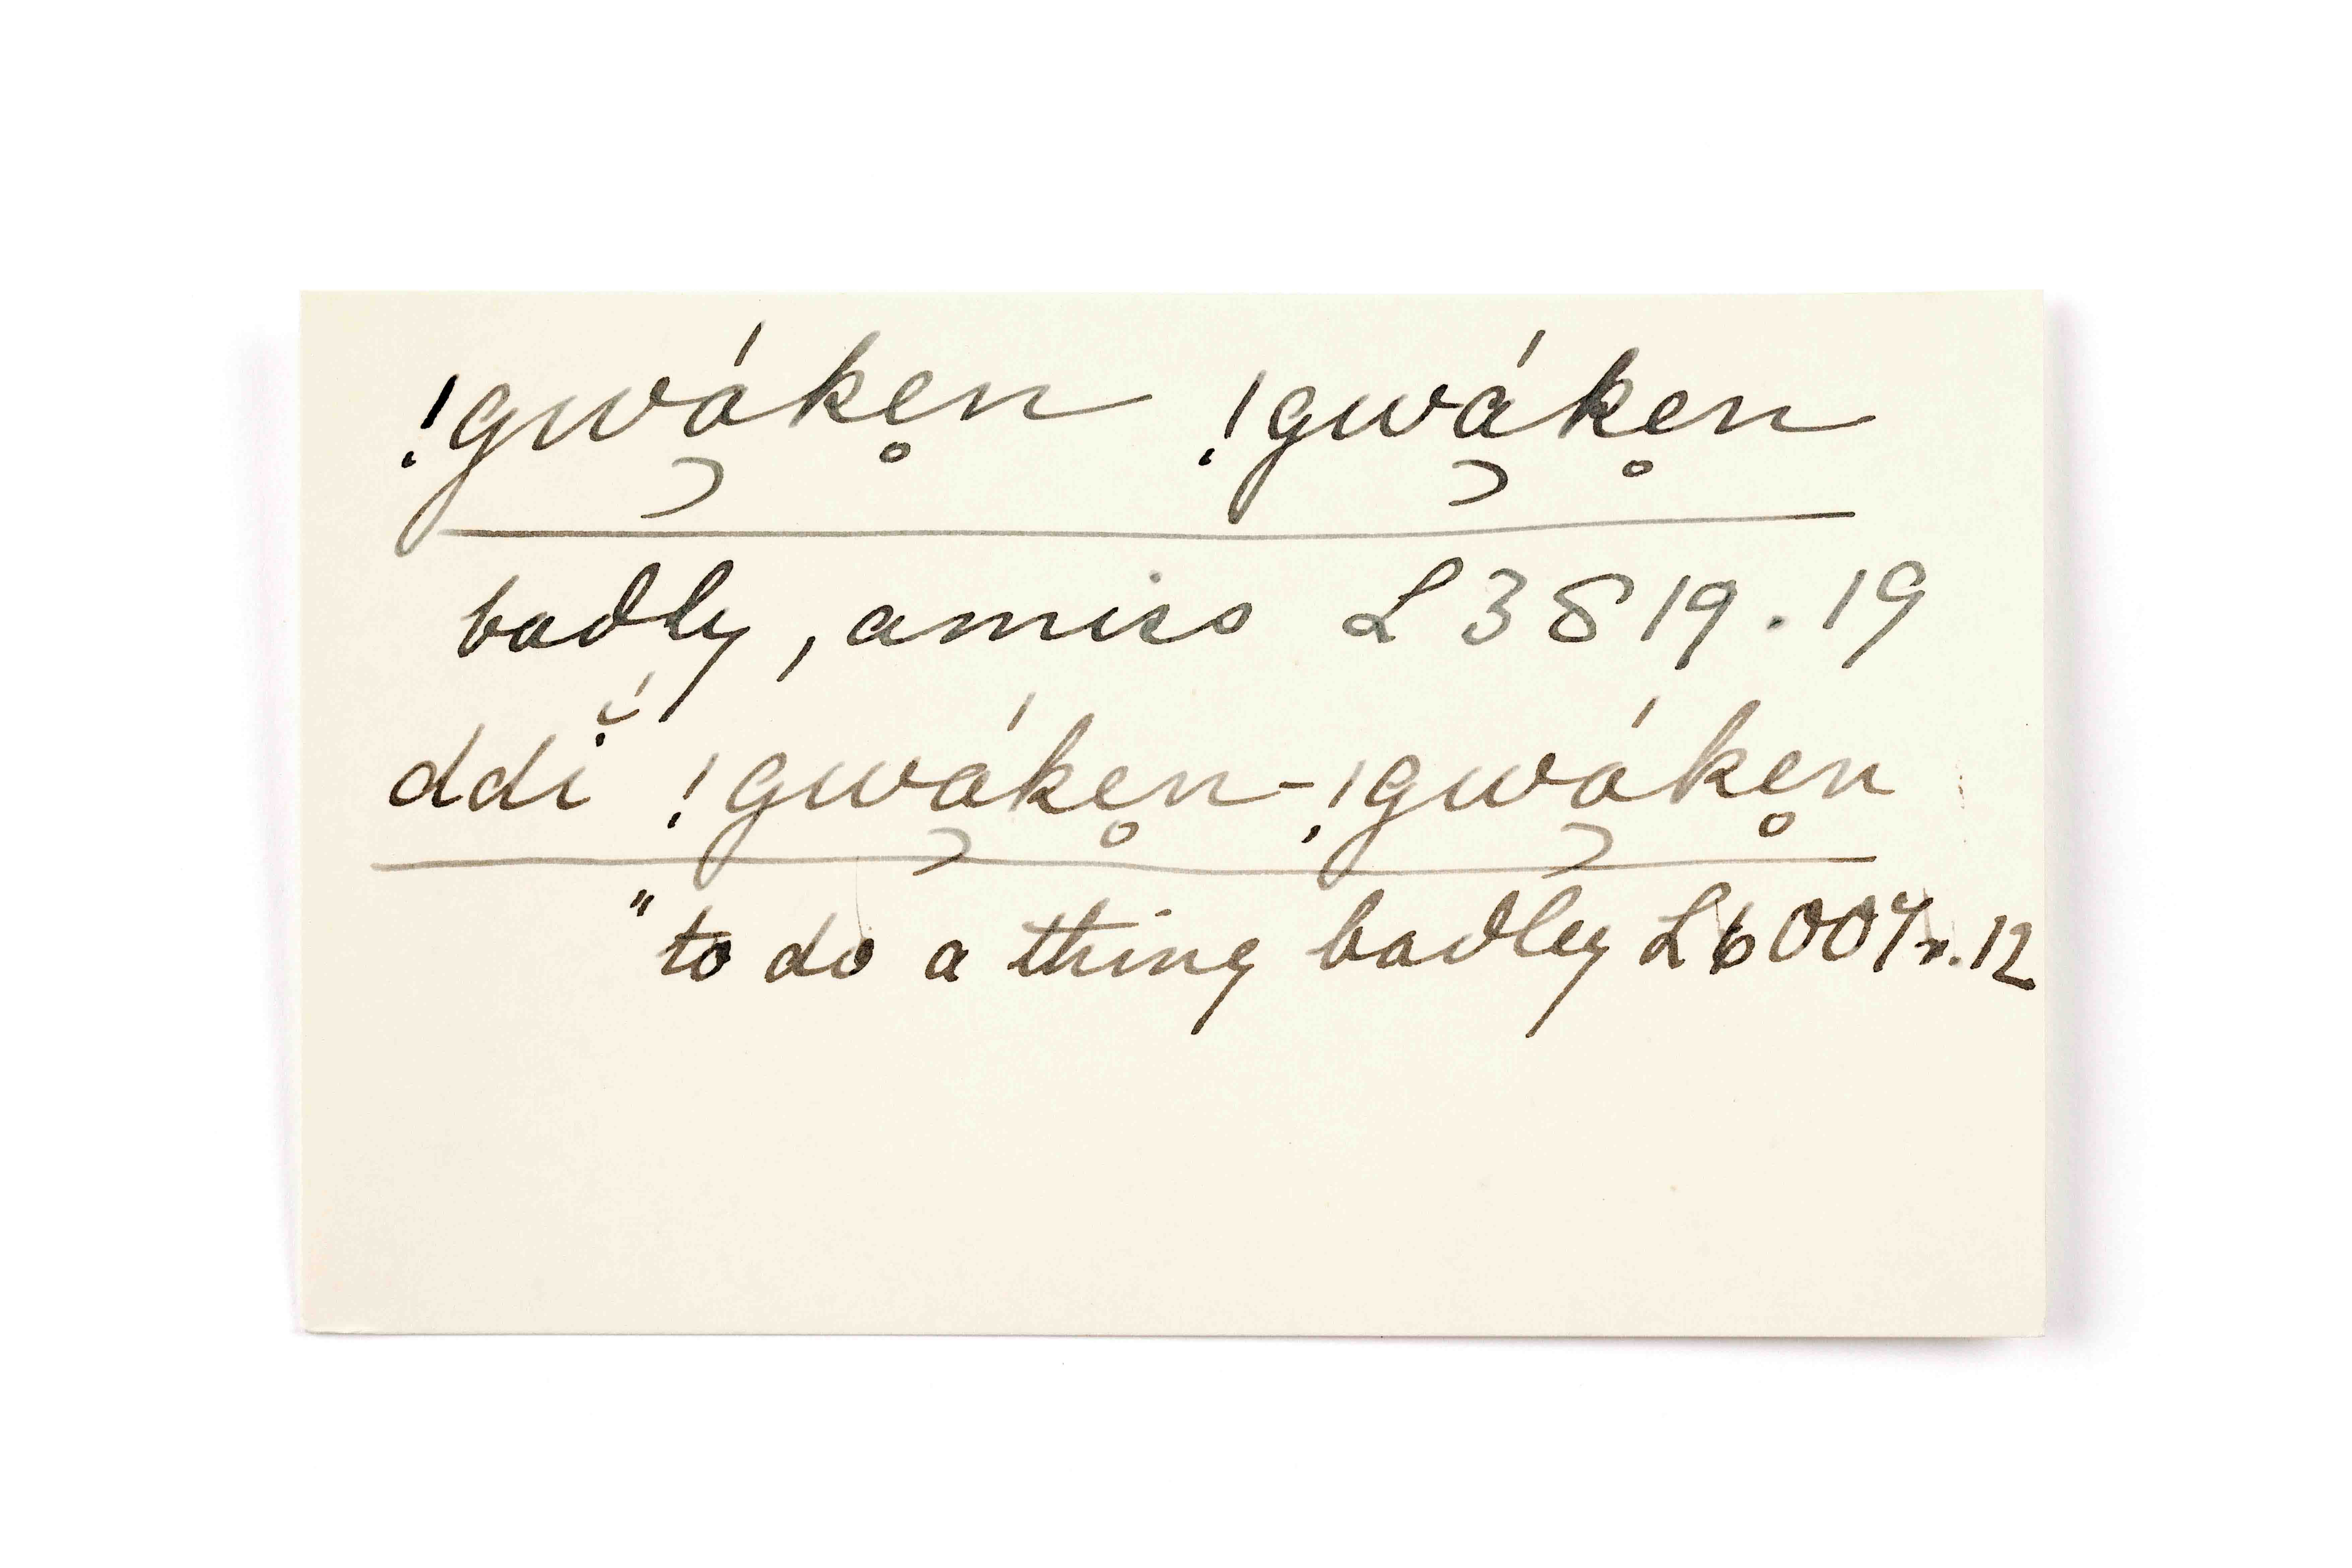 !gwá̹ke̥n !gwá̹ke̥n
badly, amiss L 3819.19
ddı̆́ !gwá̹ke̥n-!gwá̹ke̥n
" to do a thing badley